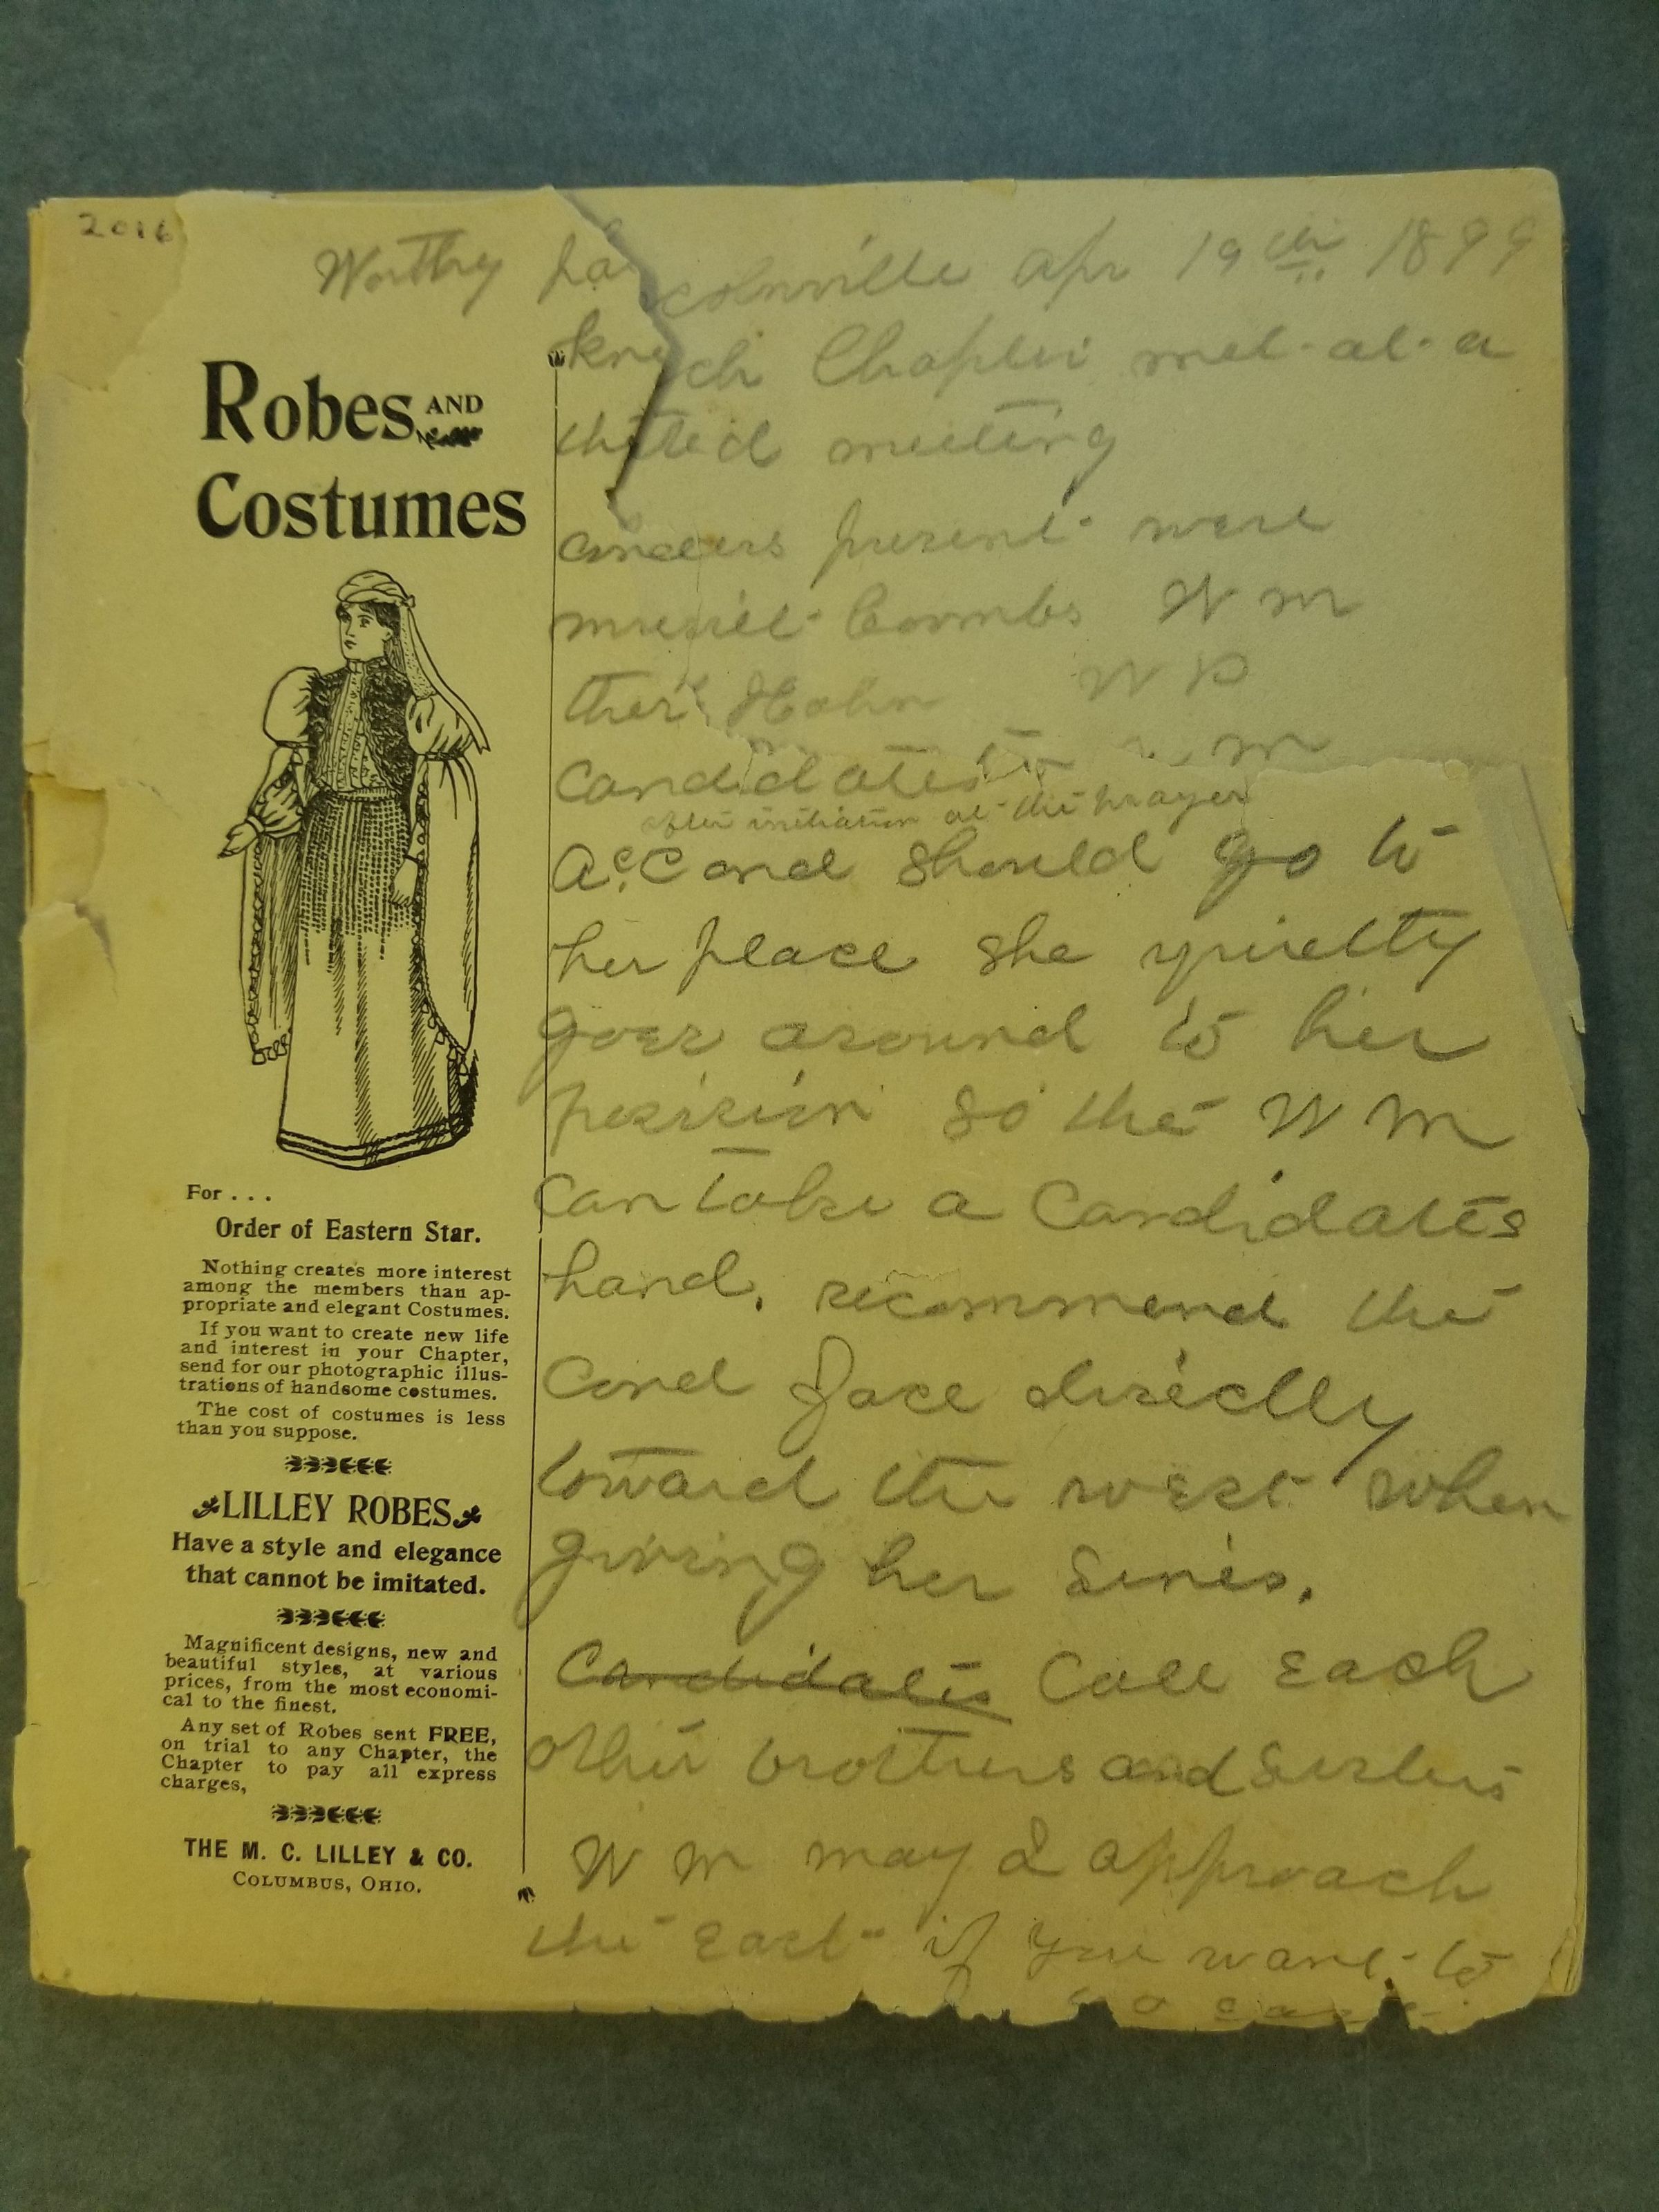 2016
Robes AND
Costumes
For . . .
Order of Eastern Star.
Nothing creates more interest
among the members than ap-
propriate and elegant Costumes.
If you want to create new life
and interest in your Chapter,
send for our photographic illus-
trations of handsome costumes.
The cost of costumes is less
than you suppose.
LILLEY ROBES
Have a style and elegance
that cannot be imitated.
Magnificent designs, new and
beautiful styles, at various
prices, from the most economi-
cal to the finest.
Any set of Robes sent FREE,
on trial to any Chapter, the
Chapter to pay all express
charges,
THE M. C. LILLEY & CO.
COLUMBUS, OHIO.
Worthy apr 19th 1899
Chapter met at a
meeting
present were
Coombs W M
Hahn W P
Candidates M
after initiation at the prayer
Cand should go to
her place she quietly
goes around to her
position so the W M
can take a Candidates
hand. recommend the
Cand face directly
toward the west when
giving her sines.
Candidates Call Each
other brothers and Sisters
W M may I approach
the East if you want to